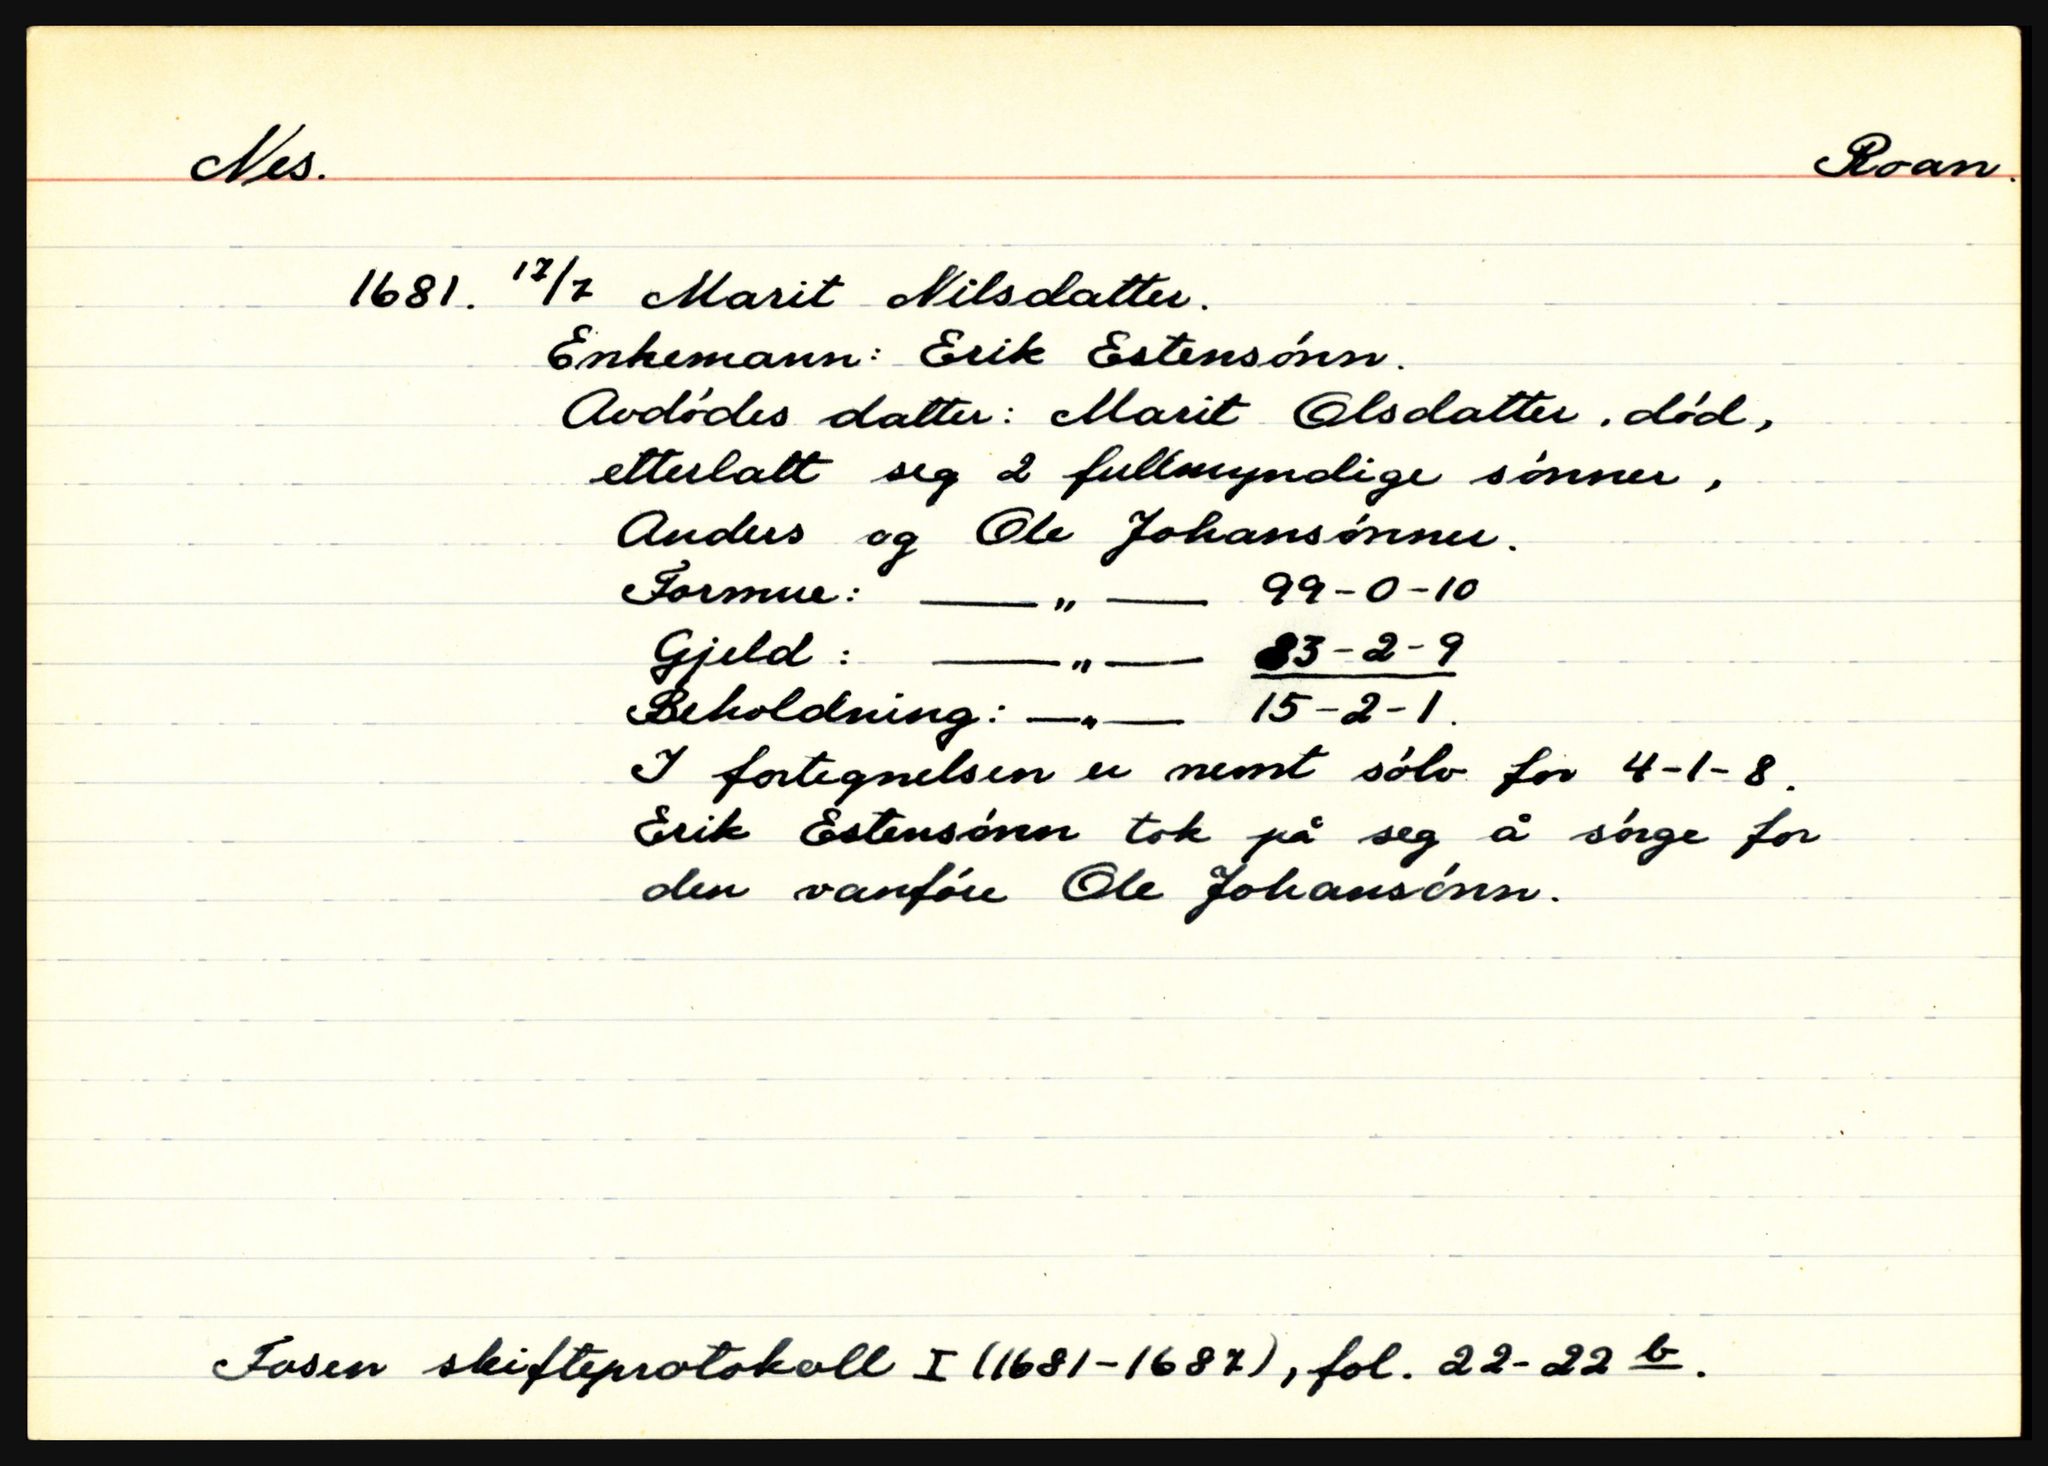 Nes. Roan.
1681. 17/7 Marit Nilsdatter.
Enkemann: Erik Estensónn.
Avdódes datter: Marit Olsdatter, dód,
etterlatt seg 2 fullmyndige sónner,
Anders og Ole Johansónner.
Formue: —— „ —— 99-0-10
Gjeld: —— „ —— 83-2-9
Beholdning: — „ — 15-2-1.
I fortegnelsen er nemt sólv for 4-1-8.
Erik Estensónn tok på seg å sórge for
den vanfóre Ole Johansónn.
Fosen skifteprotokoll I (1681-1687), fol. 22-22 b.